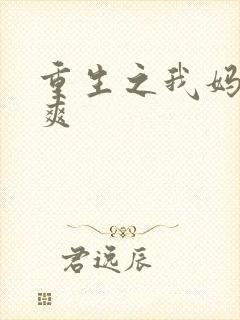 重生之我妈
爽
君远辰